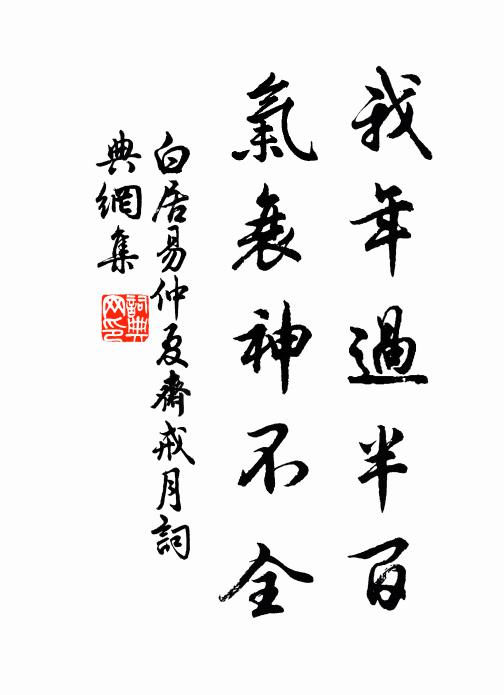 我年過半百
氣衰神不全
白居易仲夏齋戒月詞
典網集
詞典网印